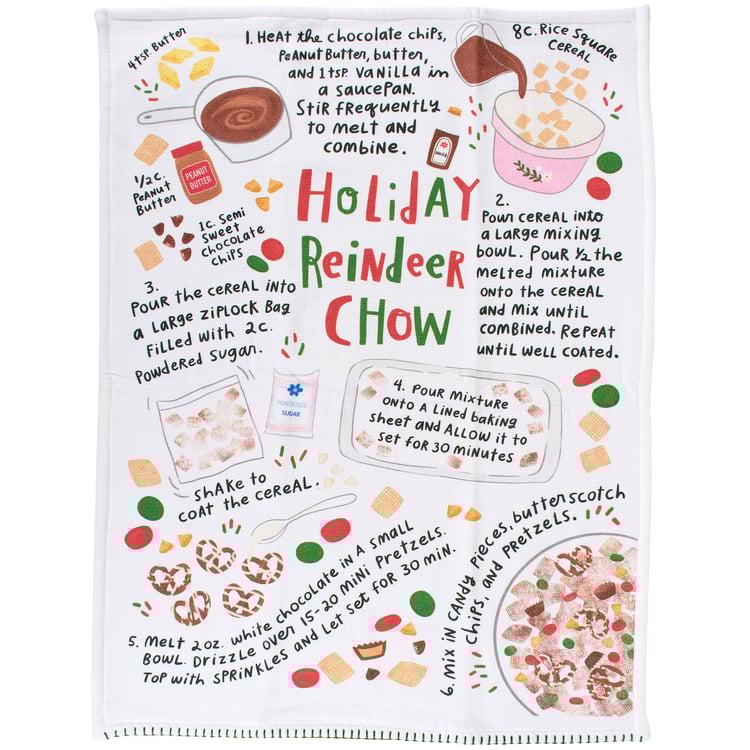 4 tsp. Butter
1. Heat the chocolate chips,
Peanut Butter, butter,
and 1 tsp. Vanilla in
a saucepan.
Stir frequently
to melt and
combine.
8c. Rice Square
Cereal
1/2 c.
Peanut
Butter
PEANUT
BUTTER
1c. Semi
Sweet
Chocolate
Chips
HOLIDAY
Reindeer
CHOW
2.
Pour cereal into
a large mixing
bowl. Pour 1/2 the
melted mixture
onto the cereal
and mix until
combined. Repeat
until well coated.
3.
Pour the cereal into
a large ziplock bag
filled with 2c.
Powdered sugar.
POWDERED
SUGAR
Shake to
coat the cereal.
4. Pour mixture
onto a lined baking
sheet and allow it to
set for 30 minutes
5. Melt 2oz. white chocolate in a small
bowl. Drizzle over 15-20 mini pretzels.
Top with sprinkles and let set for 30 min.
6. Mix in candy pieces, butterscotch
chips, and pretzels.